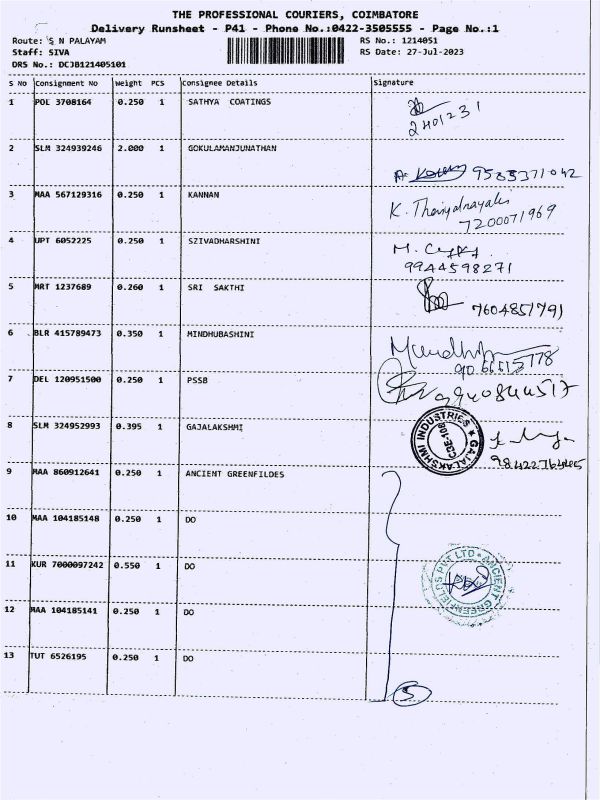 THE PROFESSIONAL COURIERS, COIMBATORE
Delivery Runsheet - P41 - Phone No.:0422-3505555 - Page No.:1
Route: S N PALAYAM RS No.: 1214051
Staff: SIVA RS Date: 27-Jul-2023
DRS No.: DCJB121405101
S No Consignment No Weight PCS Consignee Details Signature
1 POL 3708164 0.250 1 SATHYA COATINGS
2401231
2 SLM 324939246 2.000 1 GOKULAMANJUNATHAN
9585371042
3 MAA 567129316 0.250 1 KANNAN
7200071969
4 UPT 6052225 0.250 1 SZIVADHARSHINI
9944598271
5 MRT 1237689 0.260 1 SRI SAKTHI
7604851791
6 BLR 415789473 0.350 1 MINDHUBASHINI
7 DEL 120951500 0.250 1 PSSB
8 SLM 324952993 0.395 1 GAJALAKSHMI
GAJALAKSHMI INDUSTRIES
9 MAA 860912641 0.250 1 ANCIENT GREENFILDES
10 MAA 104185148 0.250 1 DO
11 KUR 7000097242 0.550 1 DO
ANCIENT GREENFIELDS PVT LTD
12 MAA 104185141 0.250 1 DO
13 TUT 6526195 0.250 1 DO
5